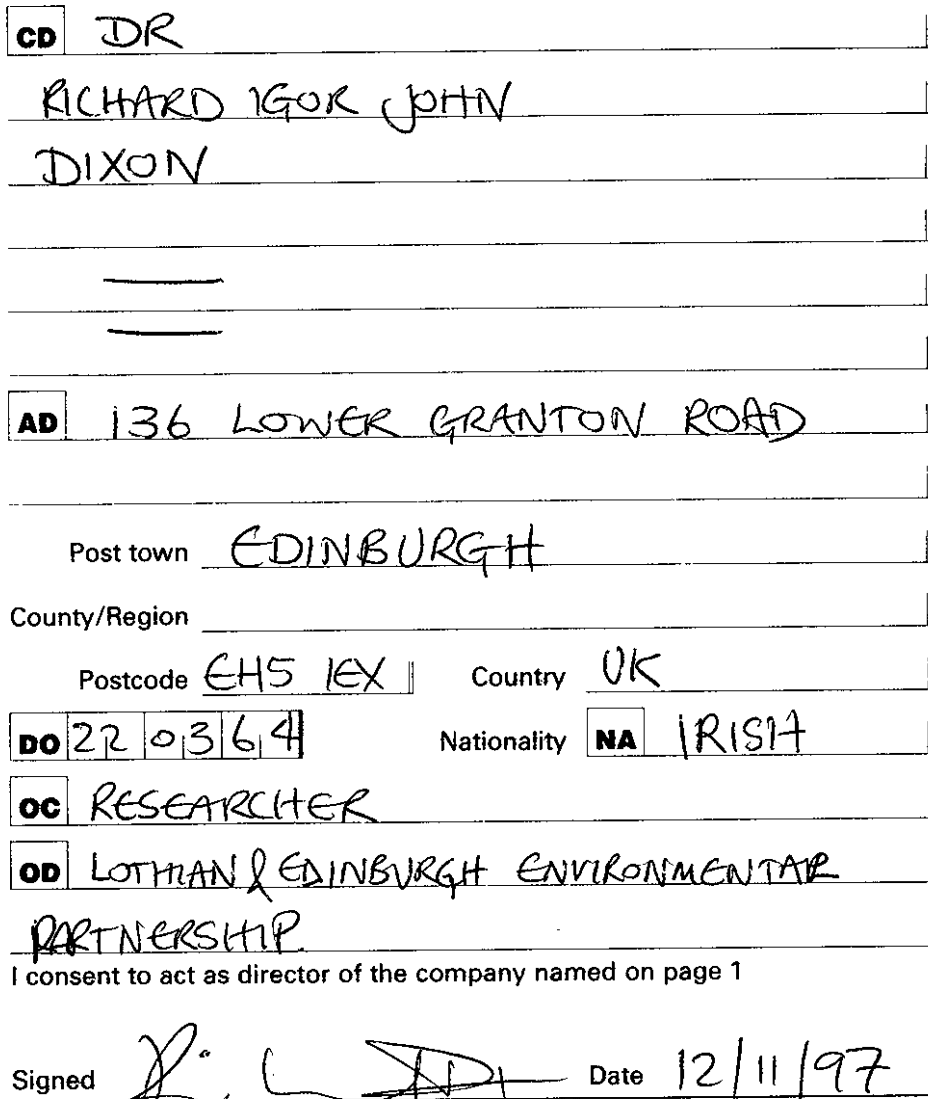 CD DR
RICHARD IGOR JOHN
DIXON
AD 136 LOWER GRANTON ROAD
Post town EDINBURGH
County/Region
Postcode EH5 1EX Country UK
DO 22 03 64 Nationality NA IRISH
OC RESEARCHER
OD LOTHIAN & EDINBURGH ENVIRONMENTAL
PARTNERSHIP
I consent to act as director of the company named on page 1
Signed Date 12/11/97